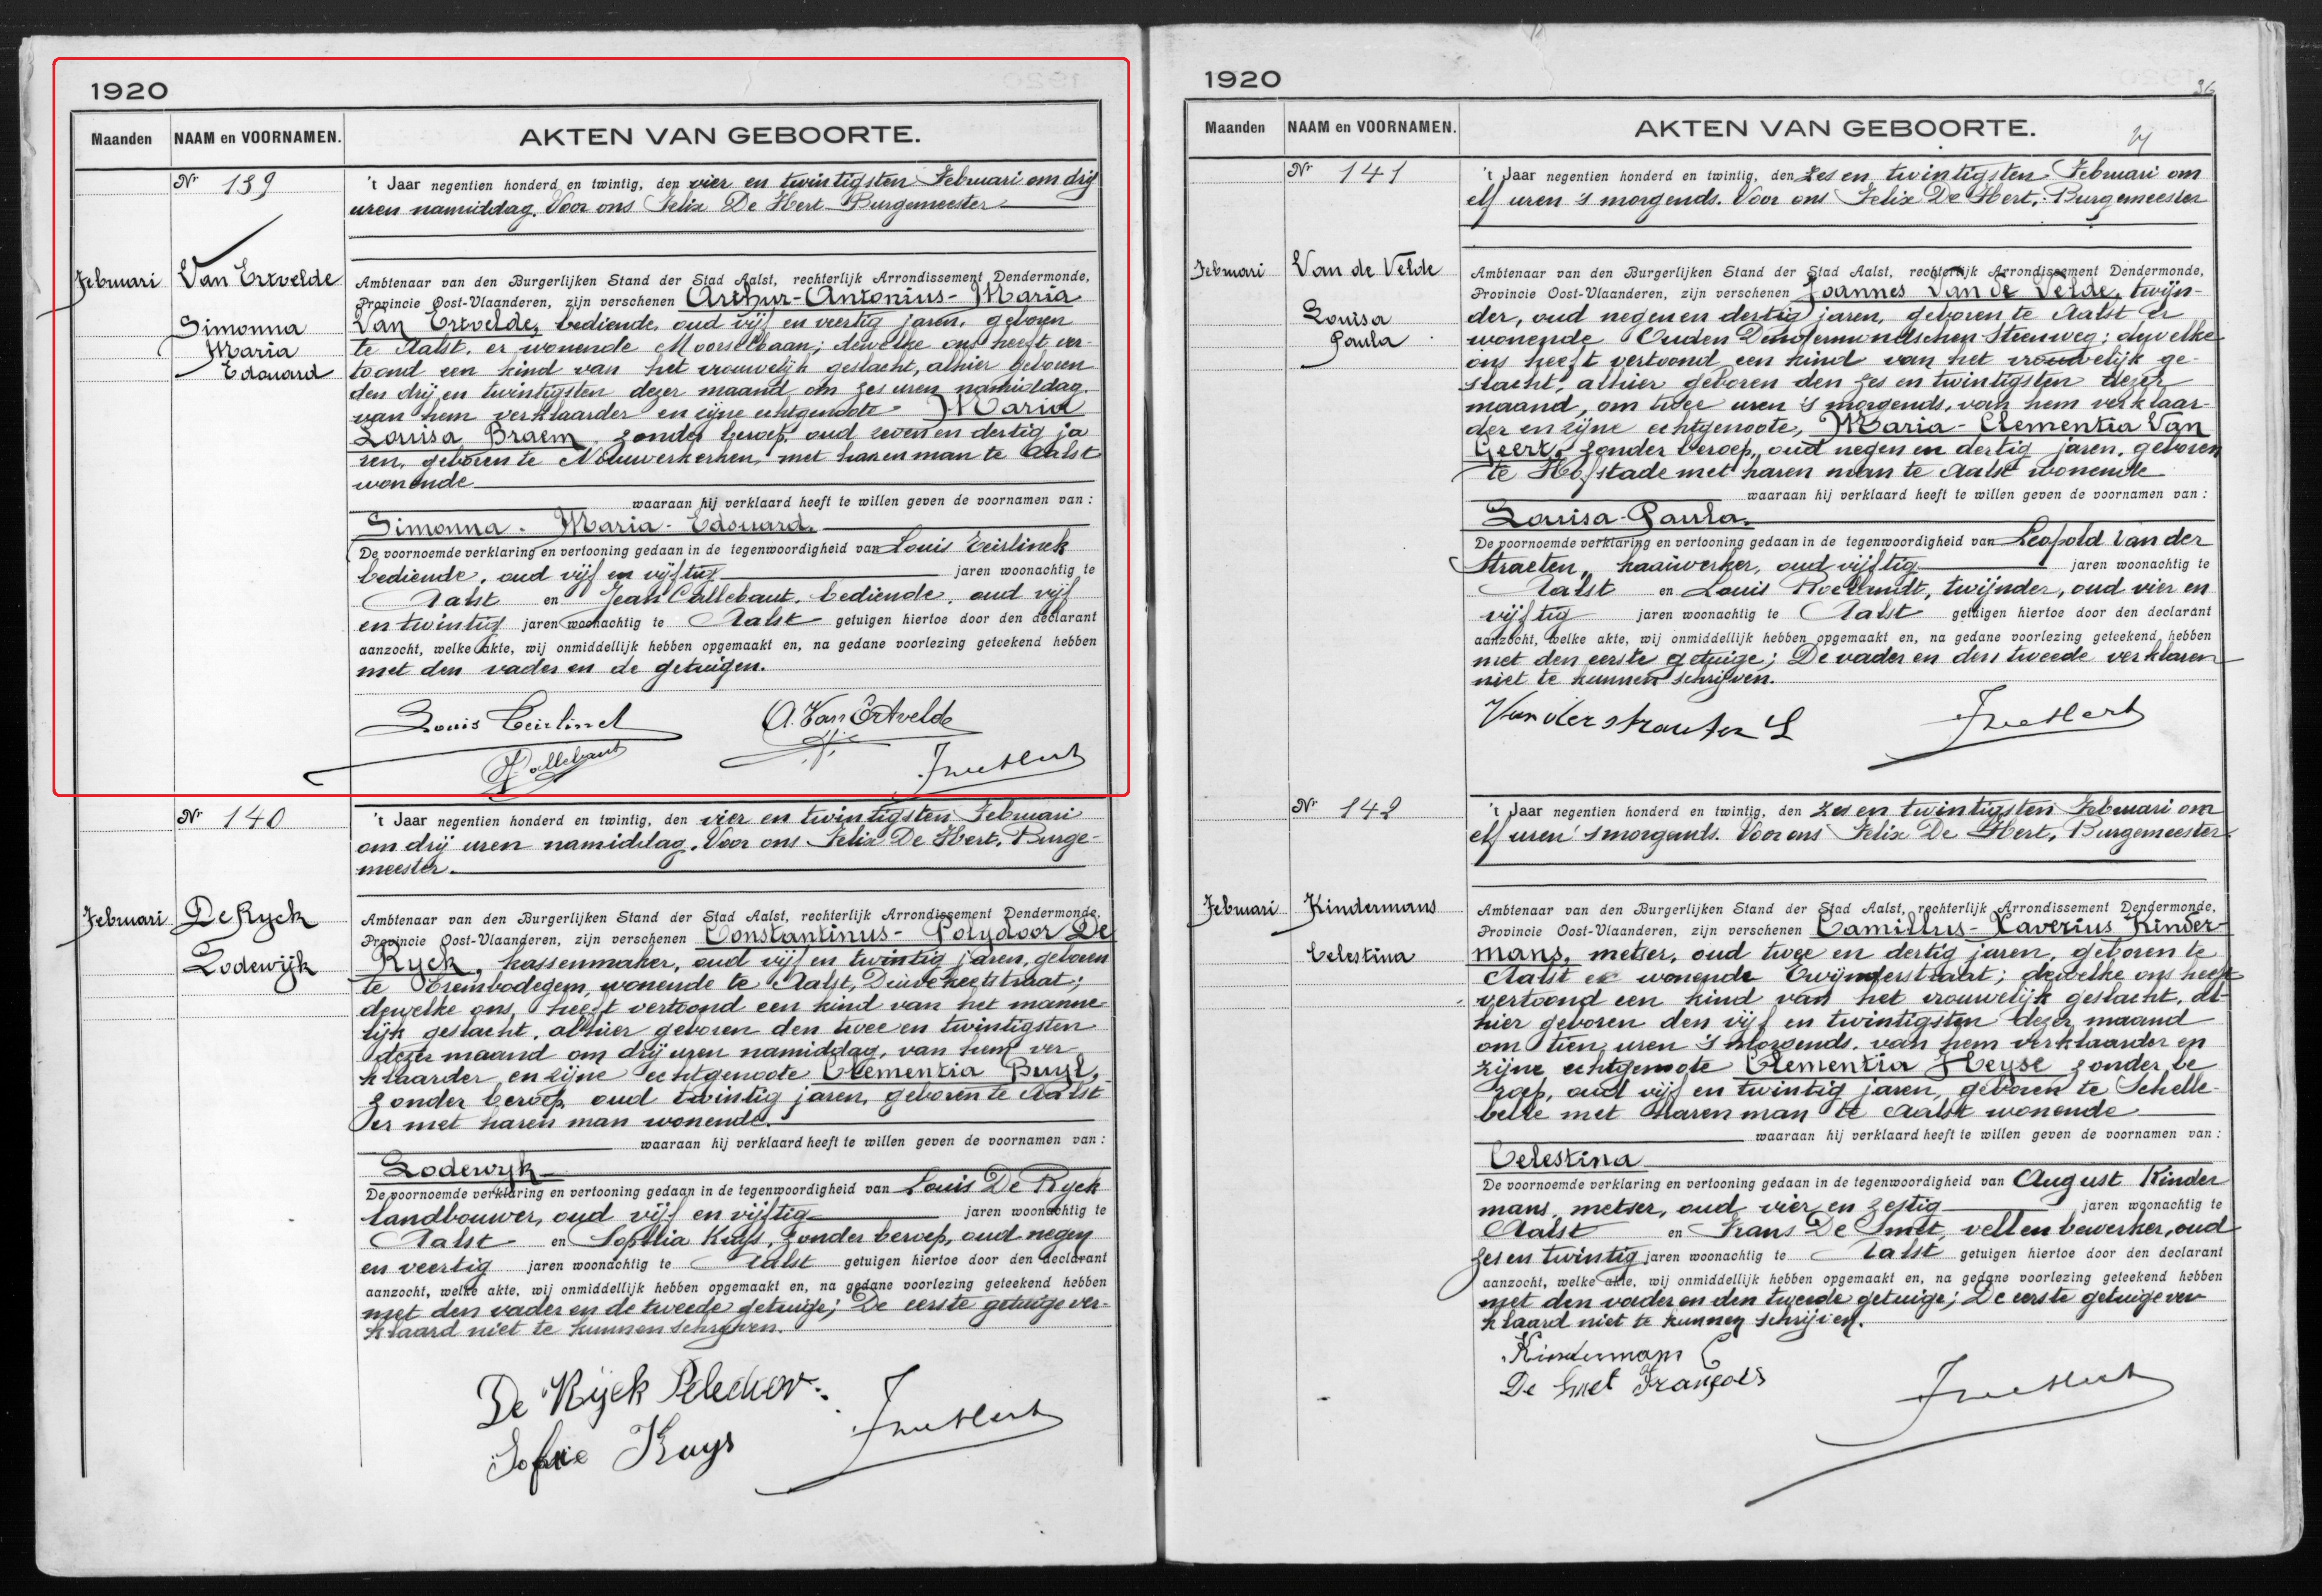 1920
Maanden NAAM en VOORNAMEN. AKTEN VAN GEBOORTE.
Nr 139
't Jaar negentien honderd en twintig, den vier en twintigsten Februari om drij
uren namiddag. Voor ons Felix De Hert Burgemeester
Februari Van Ertvelde
Simonna
Maria
Edouard
Ambtenaar van den Burgerlijken Stand der Stad Aalst, rechterlijk Arrondissement Dendermonde,
Provincie Oost-Vlaanderen, zijn verschenen Arthur-Antonius-Maria
Van Ertvelde, bediende, oud vijf en veertig jaren, geboren
te Aalst, er wonende Moorselbaan; dewelke ons heeft ver-
toond een kind van het vrouwelijk geslacht, alhier geboren
den drij en twintigsten dezer maand om zes uren namiddag
van hem verklaarder en zijne echtgenoote Maria
Louisa Braem, zonder beroep, oud zeven en dertig ja
ren, geboren te Nieuwerkerken, met haren man te Aalst
wonende
waaraan hij verklaard heeft te willen geven de voornamen van :
Simonna - Maria - Edouard.
De voornoemde verklaring en vertooning gedaan in de tegenwoordigheid van Louis Teirlinck
bediende, oud vijf en vijftig jaren woonachtig te
Aalst en Jean Callebaut, bediende, oud vijf
en twintig jaren woonachtig te Aalst getuigen hiertoe door den declarant
aanzocht, welke akte, wij onmiddellijk hebben opgemaakt en, na gedane voorlezing geteekend hebben
met den vader en de getuigen.
Louis Teirlinck A. Van Ertvelde
Callebaut
Nr 140
't Jaar negentien honderd en twintig, den vier en twintigsten Februari
om drij uren namiddag. Voor ons Felix De Hert, Burge-
meester.
Februari De Ryck
Lodewijk
Ambtenaar van den Burgerlijken Stand der Stad Aalst, rechterlijk Arrondissement Dendermonde,
Provincie Oost-Vlaanderen, zijn verschenen Constantinus- Polydoor De
Ryck, kassenmaker, oud vijf en twintig jaren, geboren
te Erembodegem, wonende te Aalst,
dewelke ons heeft vertoond een kind van het manne-
lijk geslacht, alhier geboren den twee en twintigsten
dezer maand om drij uren namiddag, van hem ver
klaarder en zijne echtgenoote Clementia Buyl,
zonder beroep, oud twintig jaren, geboren te Aalst
er met haren man wonende.
waaraan hij verklaard heeft te willen geven de voornamen van :
Lodewyk
De voornoemde verklaring en vertooning gedaan in de tegenwoordigheid van Louis De Ryck
landbouwer, oud vijf en vijftig jaren woonachtig te
Aalst en Sophia Kuys, zonder beroep, oud negen
en veertig jaren woonachtig te Aalst getuigen hiertoe door den declarant
aanzocht, welke akte, wij onmiddellijk hebben opgemaakt en, na gedane voorlezing geteekend hebben
met den vader en de tweede getuige; De eerste getuige ver-
klaard niet te kunnen schrijven.
De Rijck
Sofie Kuys
1920
36
Maanden NAAM en VOORNAMEN. AKTEN VAN GEBOORTE.
Nr 141
't Jaar negentien honderd en twintig, den zes en twintigsten Februari om
elf uren 's morgends. Voor ons Felix De Hert, Burgemeester
Februari Van de Velde
Louisa
Paula
Ambtenaar van den Burgerlijken Stand der Stad Aalst, rechterlijk Arrondissement Dendermonde,
Provincie Oost-Vlaanderen, zijn verschenen Joannes Van de Velde, twijn-
der, oud negen en dertig jaren, geboren te Aalst er
wonende Ouden Dendermondschen Steenweg; dewelke
ons heeft vertoond een kind van het vrouwelijk ge-
slacht, alhier geboren den zes en twintigsten dezer
maand, om twee uren 's morgends, van hem verklaar-
der en zijne echtgenoote, Maria-Clementia Van
Geert, zonder beroep, oud negen en dertig jaren, geboren
te Hofstade met haren man te Aalst wonende
waaraan hij verklaard heeft te willen geven de voornamen van :
Louisa-Paula.
De voornoemde verklaring en vertooning gedaan in de tegenwoordigheid van Leopold Van der
Straeten, haaiwerker, oud vijftig jaren woonachtig te
Aalst en Louis Roelandt, twijnder, oud vier en
vijftig jaren woonachtig te Aalst getuigen hiertoe door den declarant
aanzocht, welke akte, wij onmiddellijk hebben opgemaakt en, na gedane voorlezing geteekend hebben
met den eerste getuige; De vader en den tweede verklaren
niet te kunnen schrijven.
Vanderstraeten L
Nr 142
't Jaar negentien honderd en twintig, den zes en twintigsten Februari om
elf uren 's morgends. Voor ons Felix De Hert, Burgemeester
Februari Kindermans
Celestina
Ambtenaar van den Burgerlijken Stand der Stad Aalst, rechterlijk Arrondissement Dendermonde,
Provincie Oost-Vlaanderen, zijn verschenen Camillus-Xaverius Kinder-
mans, metser, oud twee en dertig jaren, geboren te
Aalst er wonende Twijnderstraat; dewelke ons heeft
vertoond een kind van het vrouwelijk geslacht, al-
hier geboren den vijf en twintigsten dezer maand
om tien uren 's morgends, van hem verklaarder en
zijne echtgenoote Clementia Heyse zonder be
roep, oud vijf en twintig jaren, geboren te Schelle-
belle met haren man te Aalst wonende
waaraan hij verklaard heeft te willen geven de voornamen van :
Celestina
De voornoemde verklaring en vertooning gedaan in de tegenwoordigheid van August Kinder
mans, metser, oud vier en zestig jaren woonachtig te
Aalst en Frans De Smet, vellenbewerker, oud
zes en twintig jaren woonachtig te Aalst getuigen hiertoe door den declarant
aanzocht, welke akte, wij onmiddellijk hebben opgemaakt en, na gedane voorlezing geteekend hebben
met den vader en den tweede getuige; De eerste getuige ver
klaard niet te kunnen schrijven.
Kindermans C
De Smet François